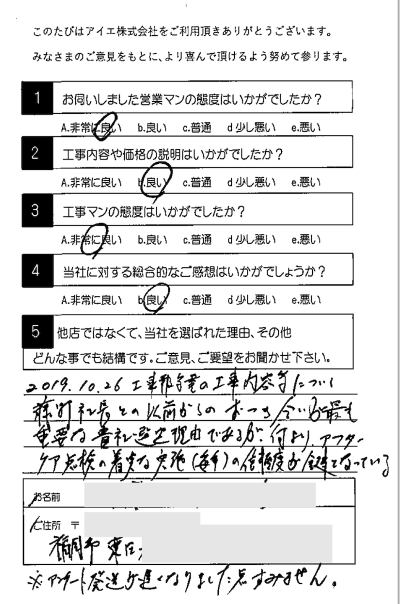 このたびはアイエ株式会社をご利用頂きありがとうございます。
みなさまのご意見をもとに、より喜んで頂けるよう努めて参ります。
1 お伺いしました営業マンの態度はいかがでしたか?
A.非常に良い b.良い c.普通 d 少し悪い e.悪い
2 工事内容や価格の説明はいかがでしたか?
A.非常に良い b.良い c.普通 d 少し悪い e.悪い
3 工事マンの態度はいかがでしたか?
A.非常に良い b.良い c.普通 d 少し悪い e.悪い
4 当社に対する総合的なご感想はいかがでしょうか?
A.非常に良い b.良い c.普通 d 少し悪い e.悪い
5 他店ではなくて、当社を選ばれた理由、その他
どんな事でも結構です。ご意見、ご要望をお聞かせ下さい。
2019.10.26 工事 の工事内容等について
社長との以前からのおつき合いが最も
重要な貴社選定理由であるが、何より、アフター
ケア点検の着実な実施(毎年)の信頼度が鍵となっている
お名前
ご住所 〒
福岡市 東区
※アンケート発送が遅くなりました点すみません。